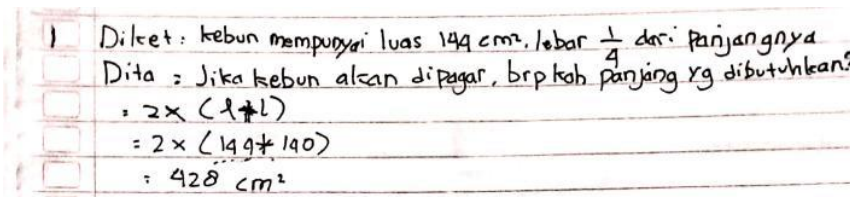 1 Diket : kebun mempunyai luas 144 cm², lebar 1/4 dari panjangnya
Dita : Jika kebun akan dipagar, brp kah panjang yg dibutuhkan?
= 2 × (l+l)
= 2 × (144+140)
= 428 cm²